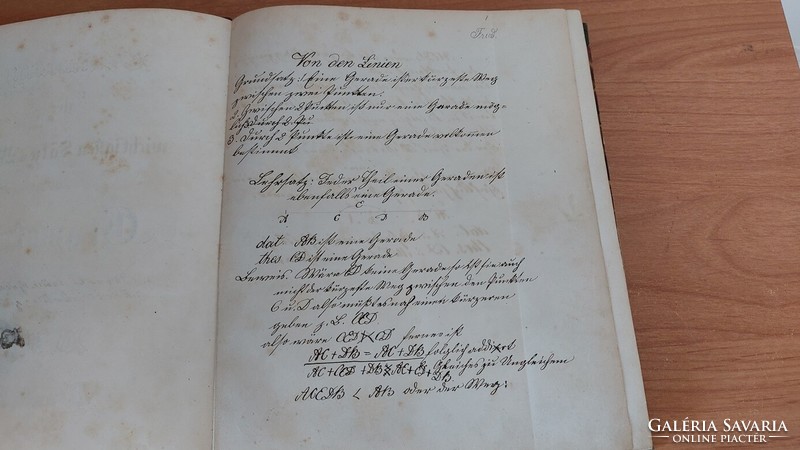 Von den Linien
Grundsatz: 1 Eine Gerade ist der kürzeste Weg
zwischen zwei Punkten.
2. Zwischen 2 Punkten ist nur eine Gerade mög-
3. Durch 2 Punkte ist eine Gerade vollkommen
bestimmt
Lehrsatz: Jeder Theil einer Geraden ist
ebenfalls eine Gerade.
C
A C D B
dat: AB ist eine Gerade
thes: CD ist eine Gerade
Beweis. Wäre CD keine Gerade so ist sie auch
nicht der kürzeste Weg zwischen den Punkten
C u. D also müßte es noch einen kürzeren
geben z. B. CED
also wäre CED < CD ferner ist
AC + DB = AC + DB folglich addirt
Gleiches zu Ungleichem
ACEDB < AB oder der Weg:
GALÉRIA SAVARIA
ONLINE PIACTÉR